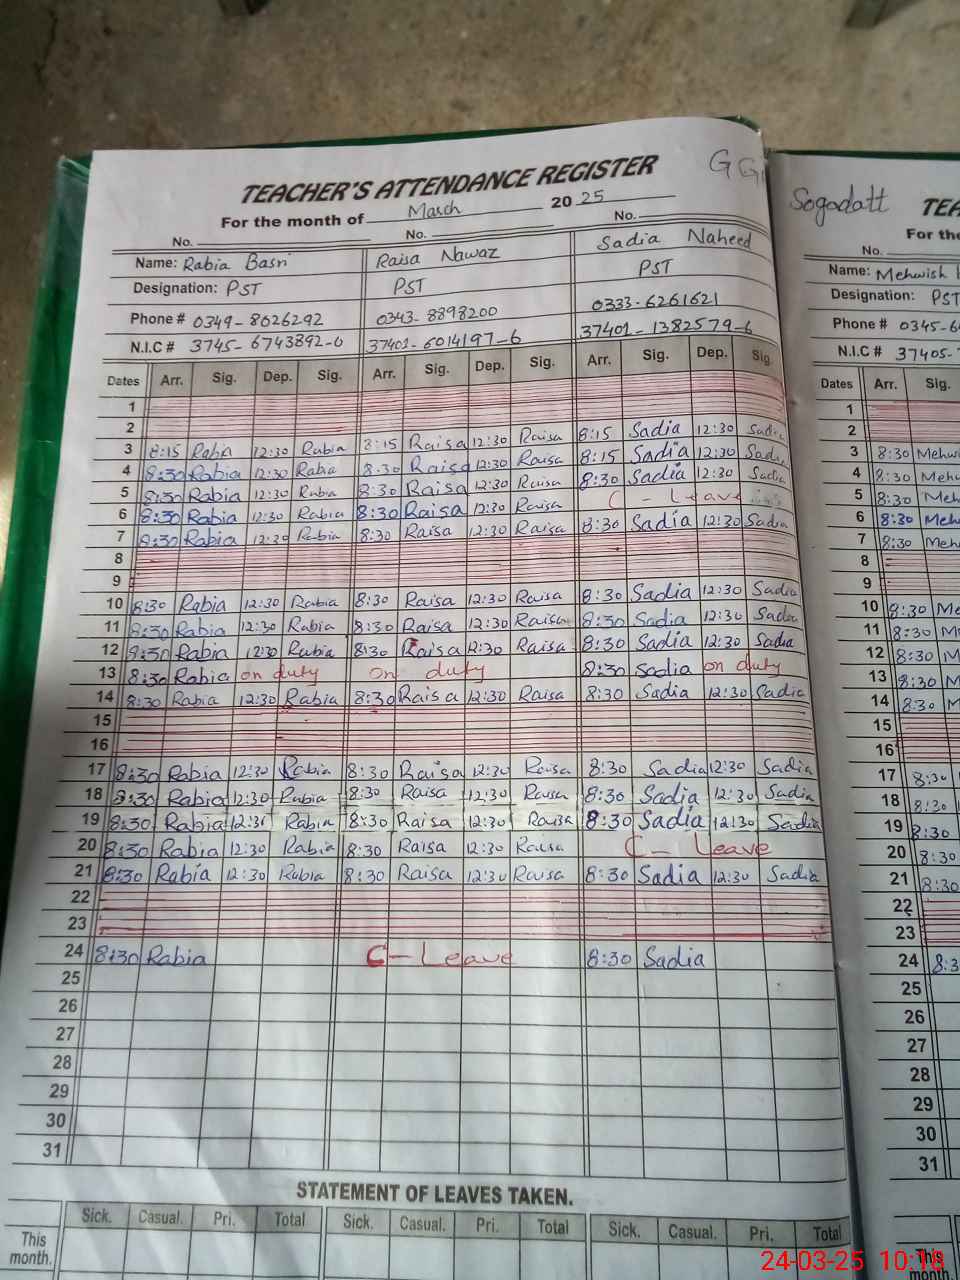 TEACHER'S ATTENDANCE REGISTER GG
For the month of March 20 25
No. No. No.
Name: Rabia Basri Raisa Nawaz Sadia Naheed
Designation: PST PST PST
Phone # 0349-8626292 0343-8898200 0333-6261621
N.I.C # 3745-6743892-0 37401-6014197-6 37401-1382579-6
Dates Arr. Sig. Dep. Sig. Arr. Sig. Dep. Sig. Arr. Sig. Dep. Sig.
1
2
3 8:15 Rabia 12:30 Rabia 8:15 Raisa 12:30 Raisa 8:15 Sadia 12:30 Sadia
4 8:30 Rabia 12:30 Rabia 8:30 Raisa 12:30 Raisa 8:15 Sadia 12:30 Sadia
5 8:30 Rabia 12:30 Rabia 8:30 Raisa 12:30 Raisa 8:30 Sadia 12:30 Sadia
6 8:30 Rabia 12:30 Rabia 8:30 Raisa 12:30 Raisa C - Leave
7 8:30 Rabia 12:30 Rabia 8:30 Raisa 12:30 Raisa 8:30 Sadia 12:30 Sadia
8
9
10 8:30 Rabia 12:30 Rabia 8:30 Raisa 12:30 Raisa 8:30 Sadia 12:30 Sadia
11 8:30 Rabia 12:30 Rabia 8:30 Raisa 12:30 Raisa 8:30 Sadia 12:30 Sadia
12 8:30 Rabia 12:30 Rabia 8:30 Raisa 12:30 Raisa 8:30 Sadia 12:30 Sadia
13 8:30 Rabia on duty on duty 8:30 Sadia on duty
14 8:30 Rabia 12:30 Rabia 8:30 Raisa 12:30 Raisa 8:30 Sadia 12:30 Sadia
15
16
17 8:30 Rabia 12:30 Rabia 8:30 Raisa 12:30 Raisa 8:30 Sadia 12:30 Sadia
18 8:30 Rabia 12:30 Rabia 8:30 Raisa 12:30 Raisa 8:30 Sadia 12:30 Sadia
19 8:30 Rabia 12:30 Rabia 8:30 Raisa 12:30 Raisa 8:30 Sadia 12:30 Sadia
20 8:30 Rabia 12:30 Rabia 8:30 Raisa 12:30 Raisa C - Leave
21 8:30 Rabia 12:30 Rabia 8:30 Raisa 12:30 Raisa 8:30 Sadia 12:30 Sadia
22
23
24 8:30 Rabia C - Leave 8:30 Sadia
25
26
27
28
29
30
31
STATEMENT OF LEAVES TAKEN.
Sick. Casual. Pri. Total Sick. Casual. Pri. Total Sick. Casual. Pri. Total
This
month.
Sogadatt
For the
No.
Name: Mehwish
Designation: PST
Phone # 0345-6
N.I.C # 37405-
Dates Arr. Sig.
1
2
3 8:30
4 8:30
5 8:30
6 8:30
7 8:30
8
9
10 8:30
11 8:30
12 8:30
13 8:30
14 8:30
15
16
17 8:30
18 8:30
19 8:30
20 8:30
21 8:30
22
23
24
25
26
27
28
29
30
31
This
month.
24-03-25 10:18